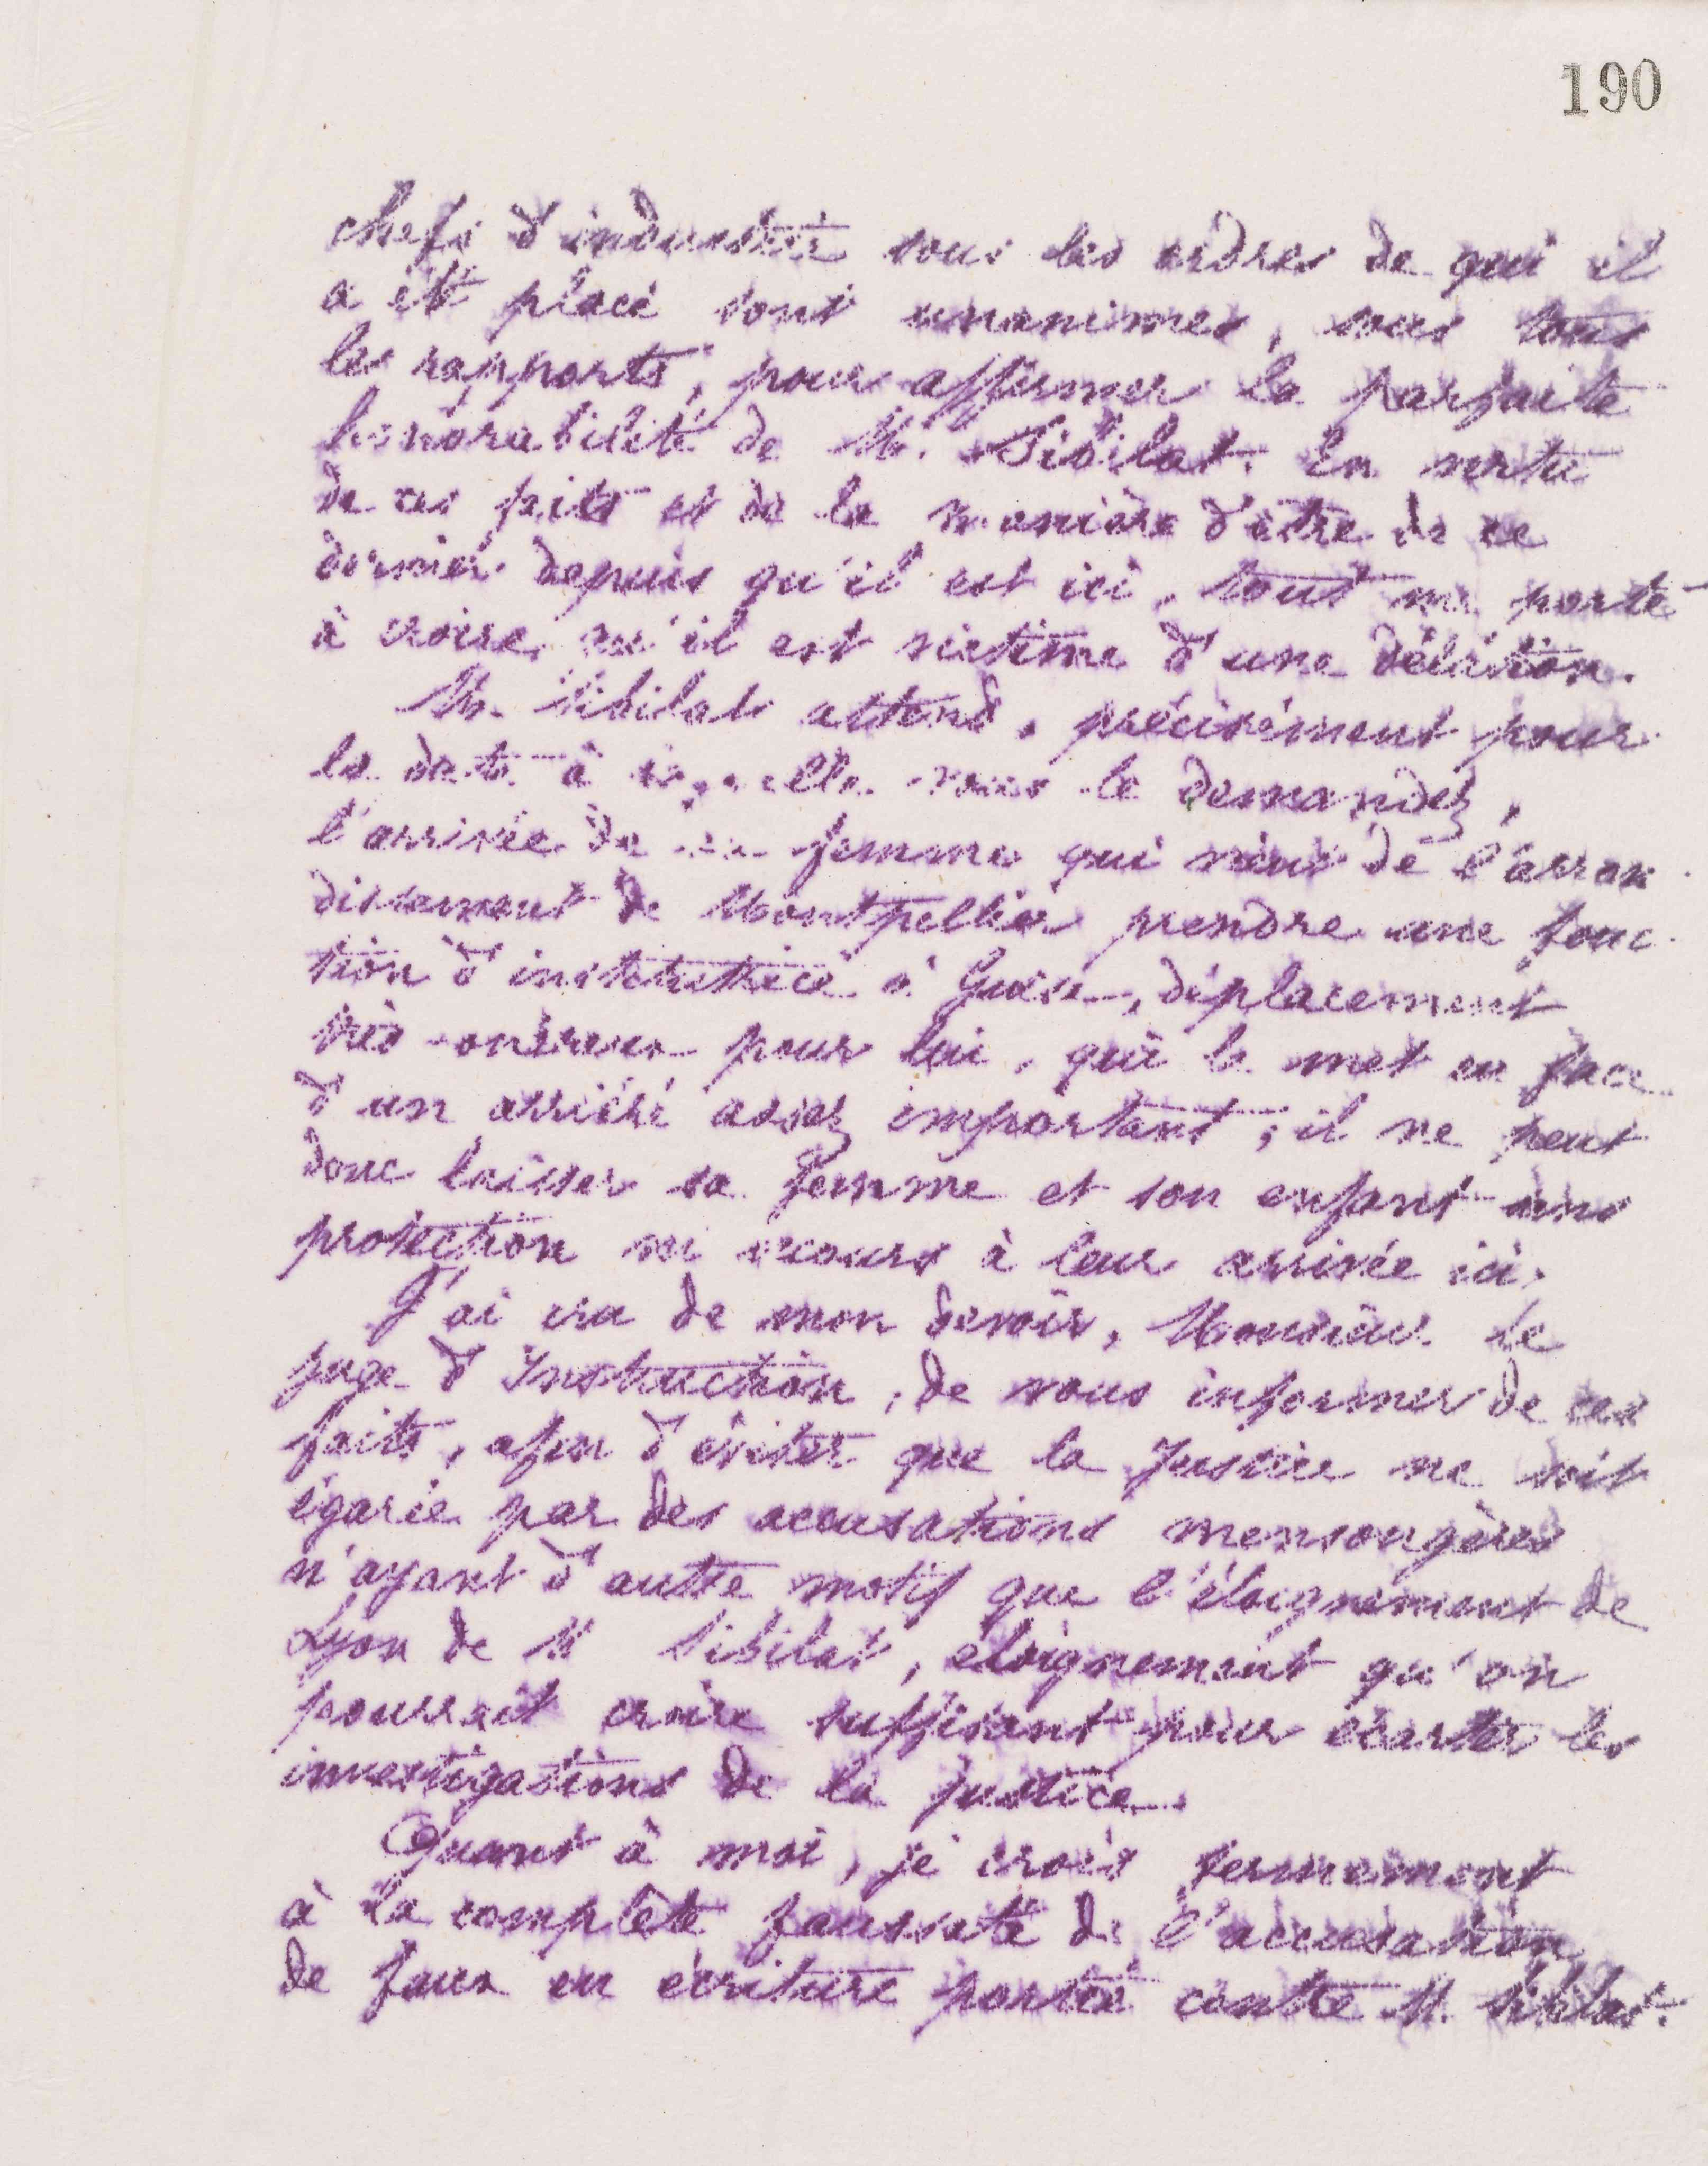 190
chefs d'industrie sous les ordres de qui il
a été placé sont unanimes, sous tous
les rapports, pour affirmer la parfaite
honorabilité de M. Sibilat. En vertu
de ces faits et de la manière d'être de ce
dernier depuis qu'il est ici, tout me porte
à croire qu'il est victime d'une délation.
M. Sibilat attend, précisément pour
la date à laquelle vous le demandez,
l'arrivée de sa femme qui vient de l'arron
dissement de Montpellier prendre une fonc
tion d'institutrice à Guise, déplacement
très onéreux pour lui, qui le met en face
d'un arriéré assez important; il ne peut
donc laisser sa femme et son enfant sans
protection ni secours à leur arrivée ici.
J'ai cru de mon devoir, Monsieur le
juge d'Instruction, de vous informer de ces
faits, afin d'éviter que la Justice ne soit
égarée par des accusations mensongères
n'ayant d'autre motif que l'éloignement de
Lyon de M Sibilat, éloignement qu'on
pourrait croire suffisant pour écarter les
investigations de la justice.
Quant à moi, je crois fermement
à la complète fausseté de l'accusation
de faux en écriture portée contre M. Sibilat.